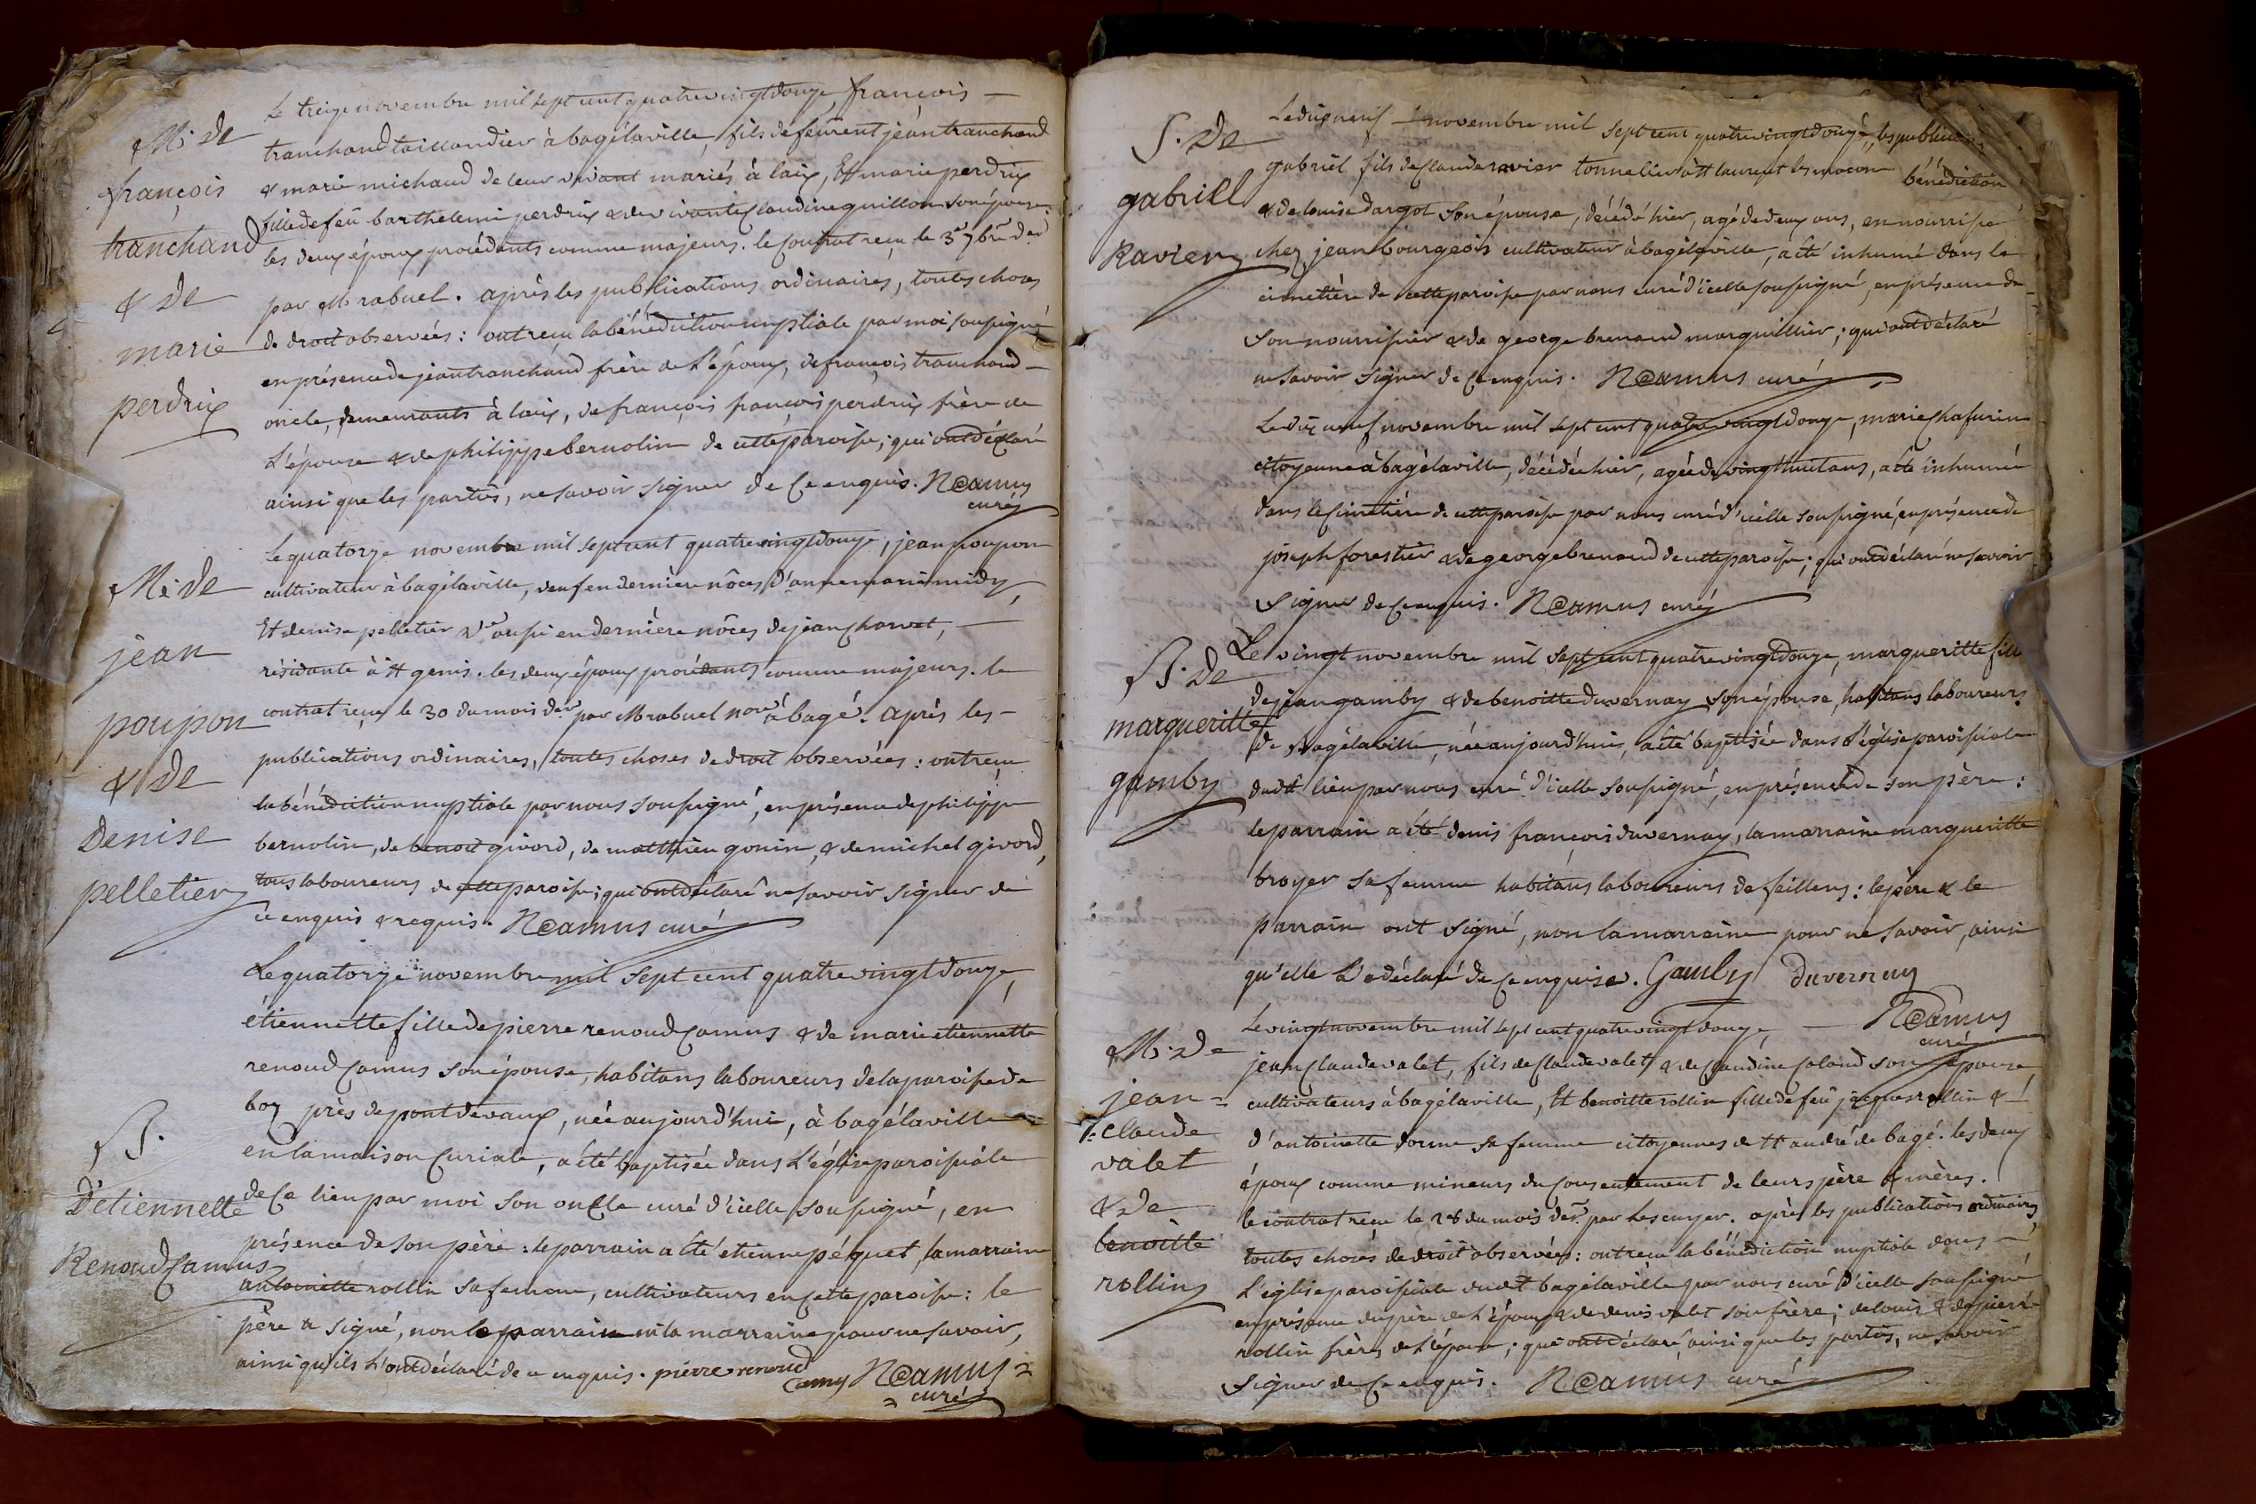 M. de
françois
tranchand
& de
marie
perdrix
Le treize novembre mil sept cent quatrevingtdouze, françois
tranchand taillandier à bagélaville, fils de feûrent jéan tranchand
& marie michaud de leur vivant mariés à laix, Et marie perdrix
fille de feû barthelemi perdrix & de vivante claudine guillon son épouse:
les deux époux procédants comme majeurs. le contrat reçu le 3e 7bre der
par M rabuel. après les publications ordinaires, toutes choses
de droit observées: ont reçu la bénédiction nuptiale par moi soussigné
en présence de jéan tranchand frère de l'époux, de françois tranchand
oncle, demeurants à laix, de françois françois perdrix frère de
l'épouse & de philippe bernolin de cette paroisse; qui ont déclaré
ainsi que les partis, ne savoir signer de ce enquis. RCamus
curé
M. de
jean
poupon
& de
denise
pelletier
Le quatorze novembre mil sept cent quatrevingtdouze, jean poupon
cultivateur à bagélaville, veuf en dernière nôces d'anne marie midy,
Et denise pelletier ve aussi en dernière nôces de jean charvet,
résidante à st genis. les deux époux procédants comme majeurs. le
contrat reçu le 30 du mois der par M rabuel nore à bagé. Après les
publications ordinaires, toutes choses de droit observées: ont reçu
la bénédiction nuptiale par nous soussigné, en présence de philippe
bernolin, de benoit givord, de matthieu gonin, & de michel givord,
tous laboureurs de cette paroisse; qui ont déclaré ne savoir signer de
ce enquis & requis. RCamus curé
B.
D'étiennette
Renoud Camus
Le quatorze novembre mil sept cent quatre vingtdouze,
étiennette fille de pierre renoud Camus & de marie étiennette
renoud Camus son épouse, habitans laboureurs de la paroisse de
boz près de pont de vaux, née aujourd'hui, à bagélaville
en la maison Curiale, a été baptisée dans l'église paroissiale
de Ce lieu par moi son oncle curé d'icelle soussigné, en
présence de son père: le parrain a été etienne péquet, la marraine
antoinette rollin sa femme, cultivateurs en cette paroisse: le
père a signé, non le parrain ni la marraine pour ne savoir,
ainsi qu'ils l'ont déclaré de ce enquis. pierre renoud
Camus RCamus
curé
S. de
gabriel
Ravier
Le dix neuf novembre mil sept cent quatrevingtdouze,
gabriel fils de Claude ravier tonnelier à st laurent les macon
& de louise dargot son épouse, décédé hier, agé de deux ans, en nourrisse
chez jean bourgeois cultivateur à bagélaville, a été inhumé dans le
cimetière de cette paroisse par nous curé d'icelle soussigné, en présence de
son nourrissier & de george brenaud marguillier; qui ont déclaré
ne savoir signer de Ce enquis. RCamus curé
Le dix neuf novembre mil sept cent quatrevingtdouze, marie chafurin
citoyenne à bagélaville, décédée hier, agée de vingthuit ans, a été inhumée
dans le Cimetière de cette paroisse par nous curé d'icelle soussigné, en présence de
joseph forestier & de george brenaud de cette paroisse; qui ont déclaré ne savoir
signer de Ce enquis. RCamus curé
B. de
margueritte
gamby
Le vingt novembre mil sept cent quatrevingtdouze, margueritte fille
de jean gamby & de benoitte duvernay son épouse, habitans laboureurs
de Bagélaville, née aujourd'hui, a été baptisée dans l'église paroissiale
dudit lieu par nous curé d'icelle soussigné, en présence de son père:
le parrain a été denis françois duvernay, la marraine margueritte
broyer sa femme habitans laboureurs de feillens: le père & le
parrain ont signé, non la marraine pour ne savoir, ainsi
qu'elle l'a déclaré de Ce enquise. Gamby duvernay
RCamus
curé
M. de
jean
claude
valet
& de
benoitte
rollin
Le vingt novembre mil sept cent quatrevingt douze,
jean Claude valet, fils de Claude valet & de Claudine Coland son épouse
cultivateurs à bagélaville, Et benoitte rollin fille de feû jacques rollin &
d'antoinette dorme sa femme citoyennes de st andré de bagé. les deux
époux comme mineurs du Consentement de leurs père & mères.
le contrat reçu le 28 du mois der par Lescuyer. après les publications ordinaires
toutes choses de droit observées: ont reçu la bénédiction nuptiale dans
l'église paroissiale dudit bagélaville par nous curé d'icelle soussigné
en présence du père de l'époux & de denis valet son frère; de louis & de pierre
rollin frères de l'épouse; qui ont déclaré, ainsi que les partis, ne savoir
signer de Ce enquis. RCamus curé